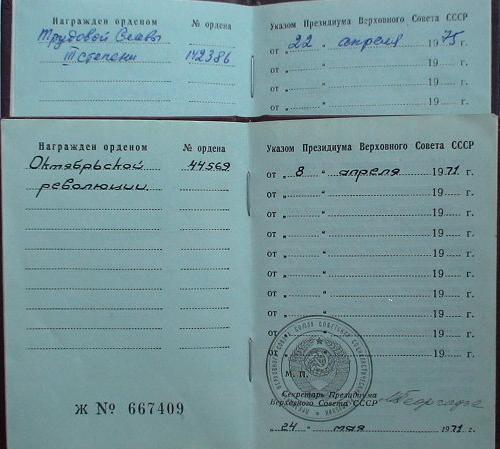 Награжден орденом № ордена Указом Президиума Верховного Совета СССР
Трудовой Славы
III степени 142386 от „22“ апреля 1975 г.
от „ “ 19 г.
от „ “ 19 г.
от „ “ 19 г.
Награжден орденом № ордена Указом Президиума Верховного Совета СССР
Октябрьской 44569 от „8“ апреля 1971 г.
революции от „ “ 19 г.
от „ “ 19 г.
от „ “ 19 г.
от „ “ 19 г.
от „ “ 19 г.
от „ “ 19 г.
от „ “ 19 г.
от „ “ 19 г.
от „ “ 19 г.
М. П.
Секретарь Президиума
Верховного Совета СССР
Ж № 667409
„24“ мая 1971 г.